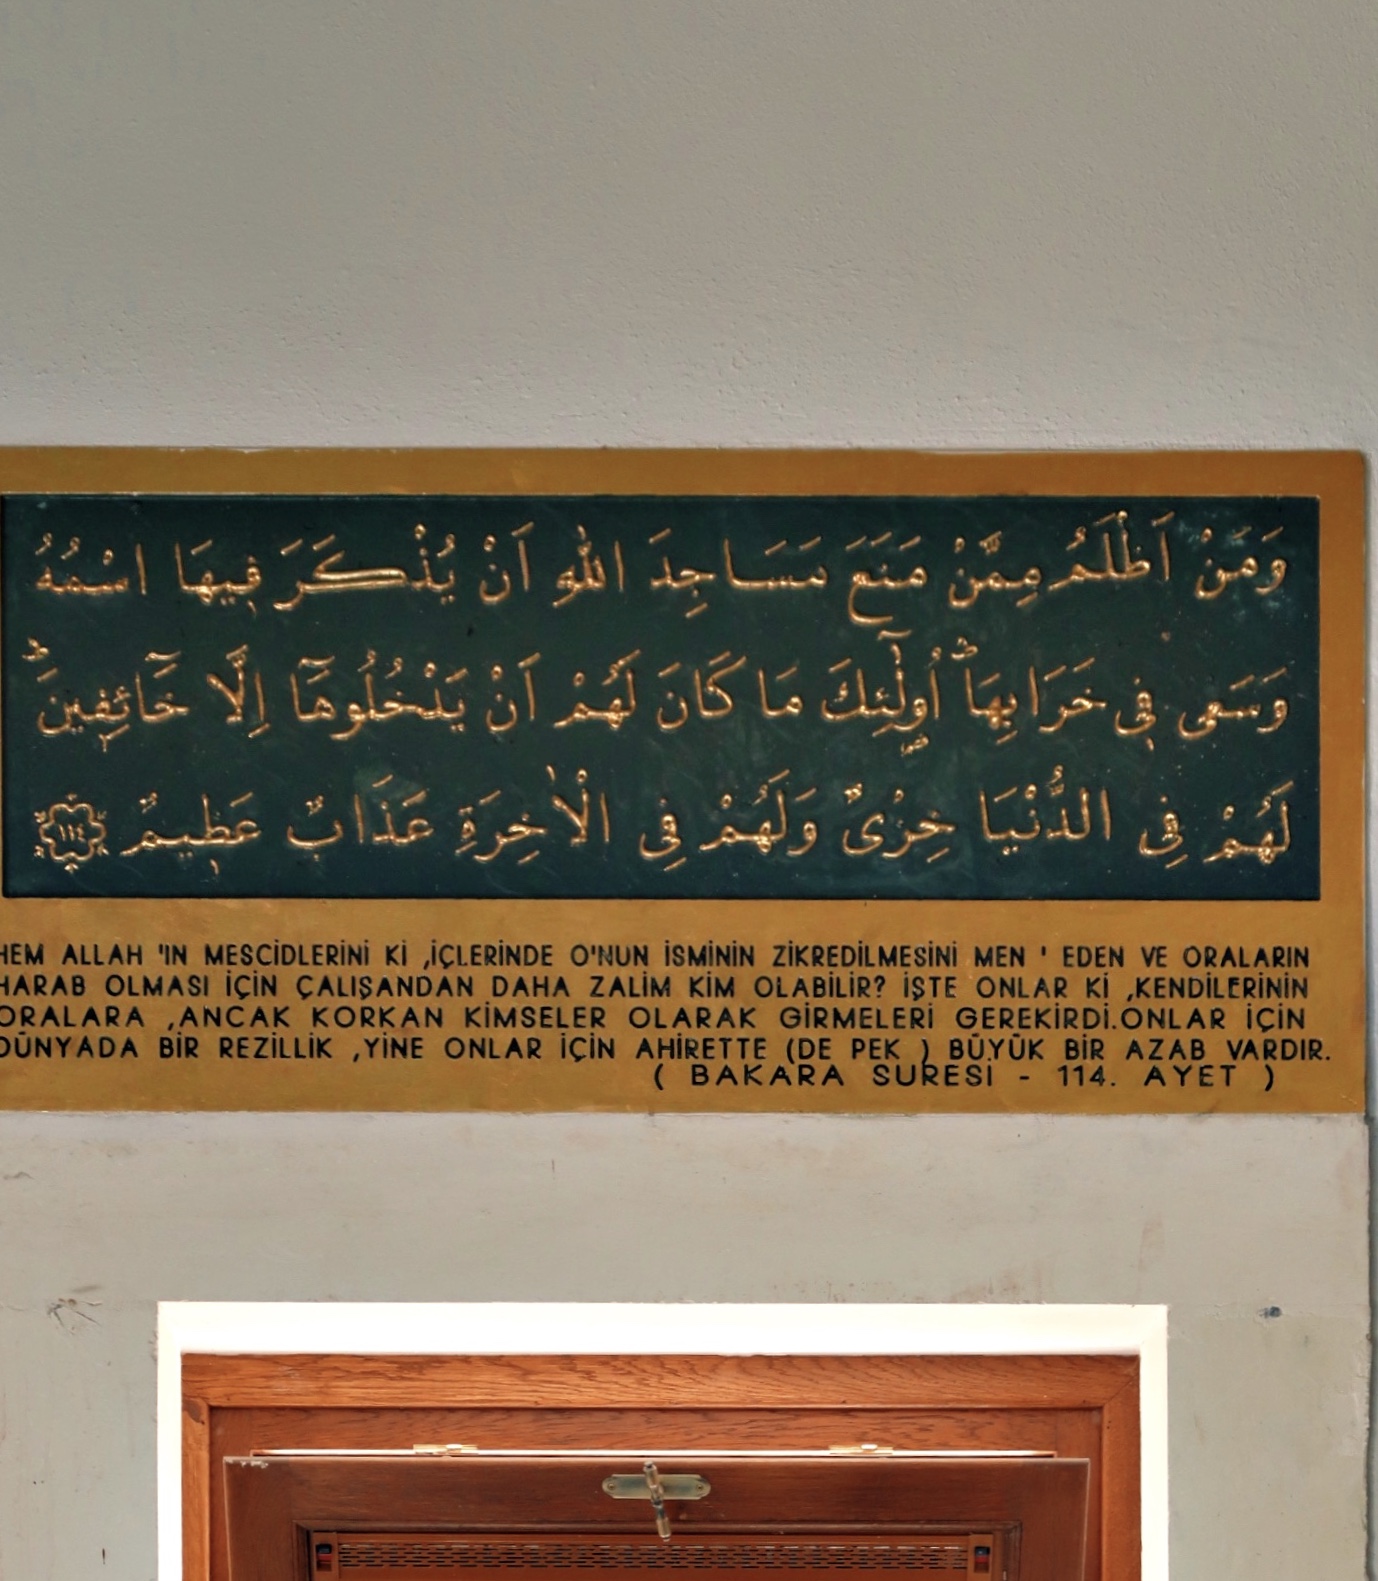 وَمَنْ اَظْلَمُ مِمَّنْ مَنَعَ مَسَاجِدَ اللّٰهِ اَنْ يُذْكَرَ فِيهَا اسْمُهُ
وَسَعٰى فِى خَرَابِهَاۜ اُو۬لٰٓئِكَ مَا كَانَ لَهُمْ اَنْ يَدْخُلُوهَٓا اِلَّا خَٓائِفِينَۜ
لَهُمْ فِى الدُّنْيَا خِزْىٌ وَلَهُمْ فِى الْاٰخِرَةِ عَذَابٌ عَظِيمٌ ١١٤
HEM ALLAH 'IN MESCİDLERİNİ Kİ ,İÇLERİNDE O'NUN İSMİNİN ZİKREDİLMESİNİ MEN ' EDEN VE ORALARIN
HARAB OLMASI İÇİN ÇALIŞANDAN DAHA ZALİM KİM OLABİLİR? İŞTE ONLAR Kİ ,KENDİLERİNİN
ORALARA ,ANCAK KORKAN KİMSELER OLARAK GİRMELERİ GEREKİRDİ.ONLAR İÇİN
DÜNYADA BİR REZİLLİK ,YİNE ONLAR İÇİN AHİRETTE (DE PEK ) BÜYÜK BİR AZAB VARDIR.
( BAKARA SURESİ - 114. AYET )